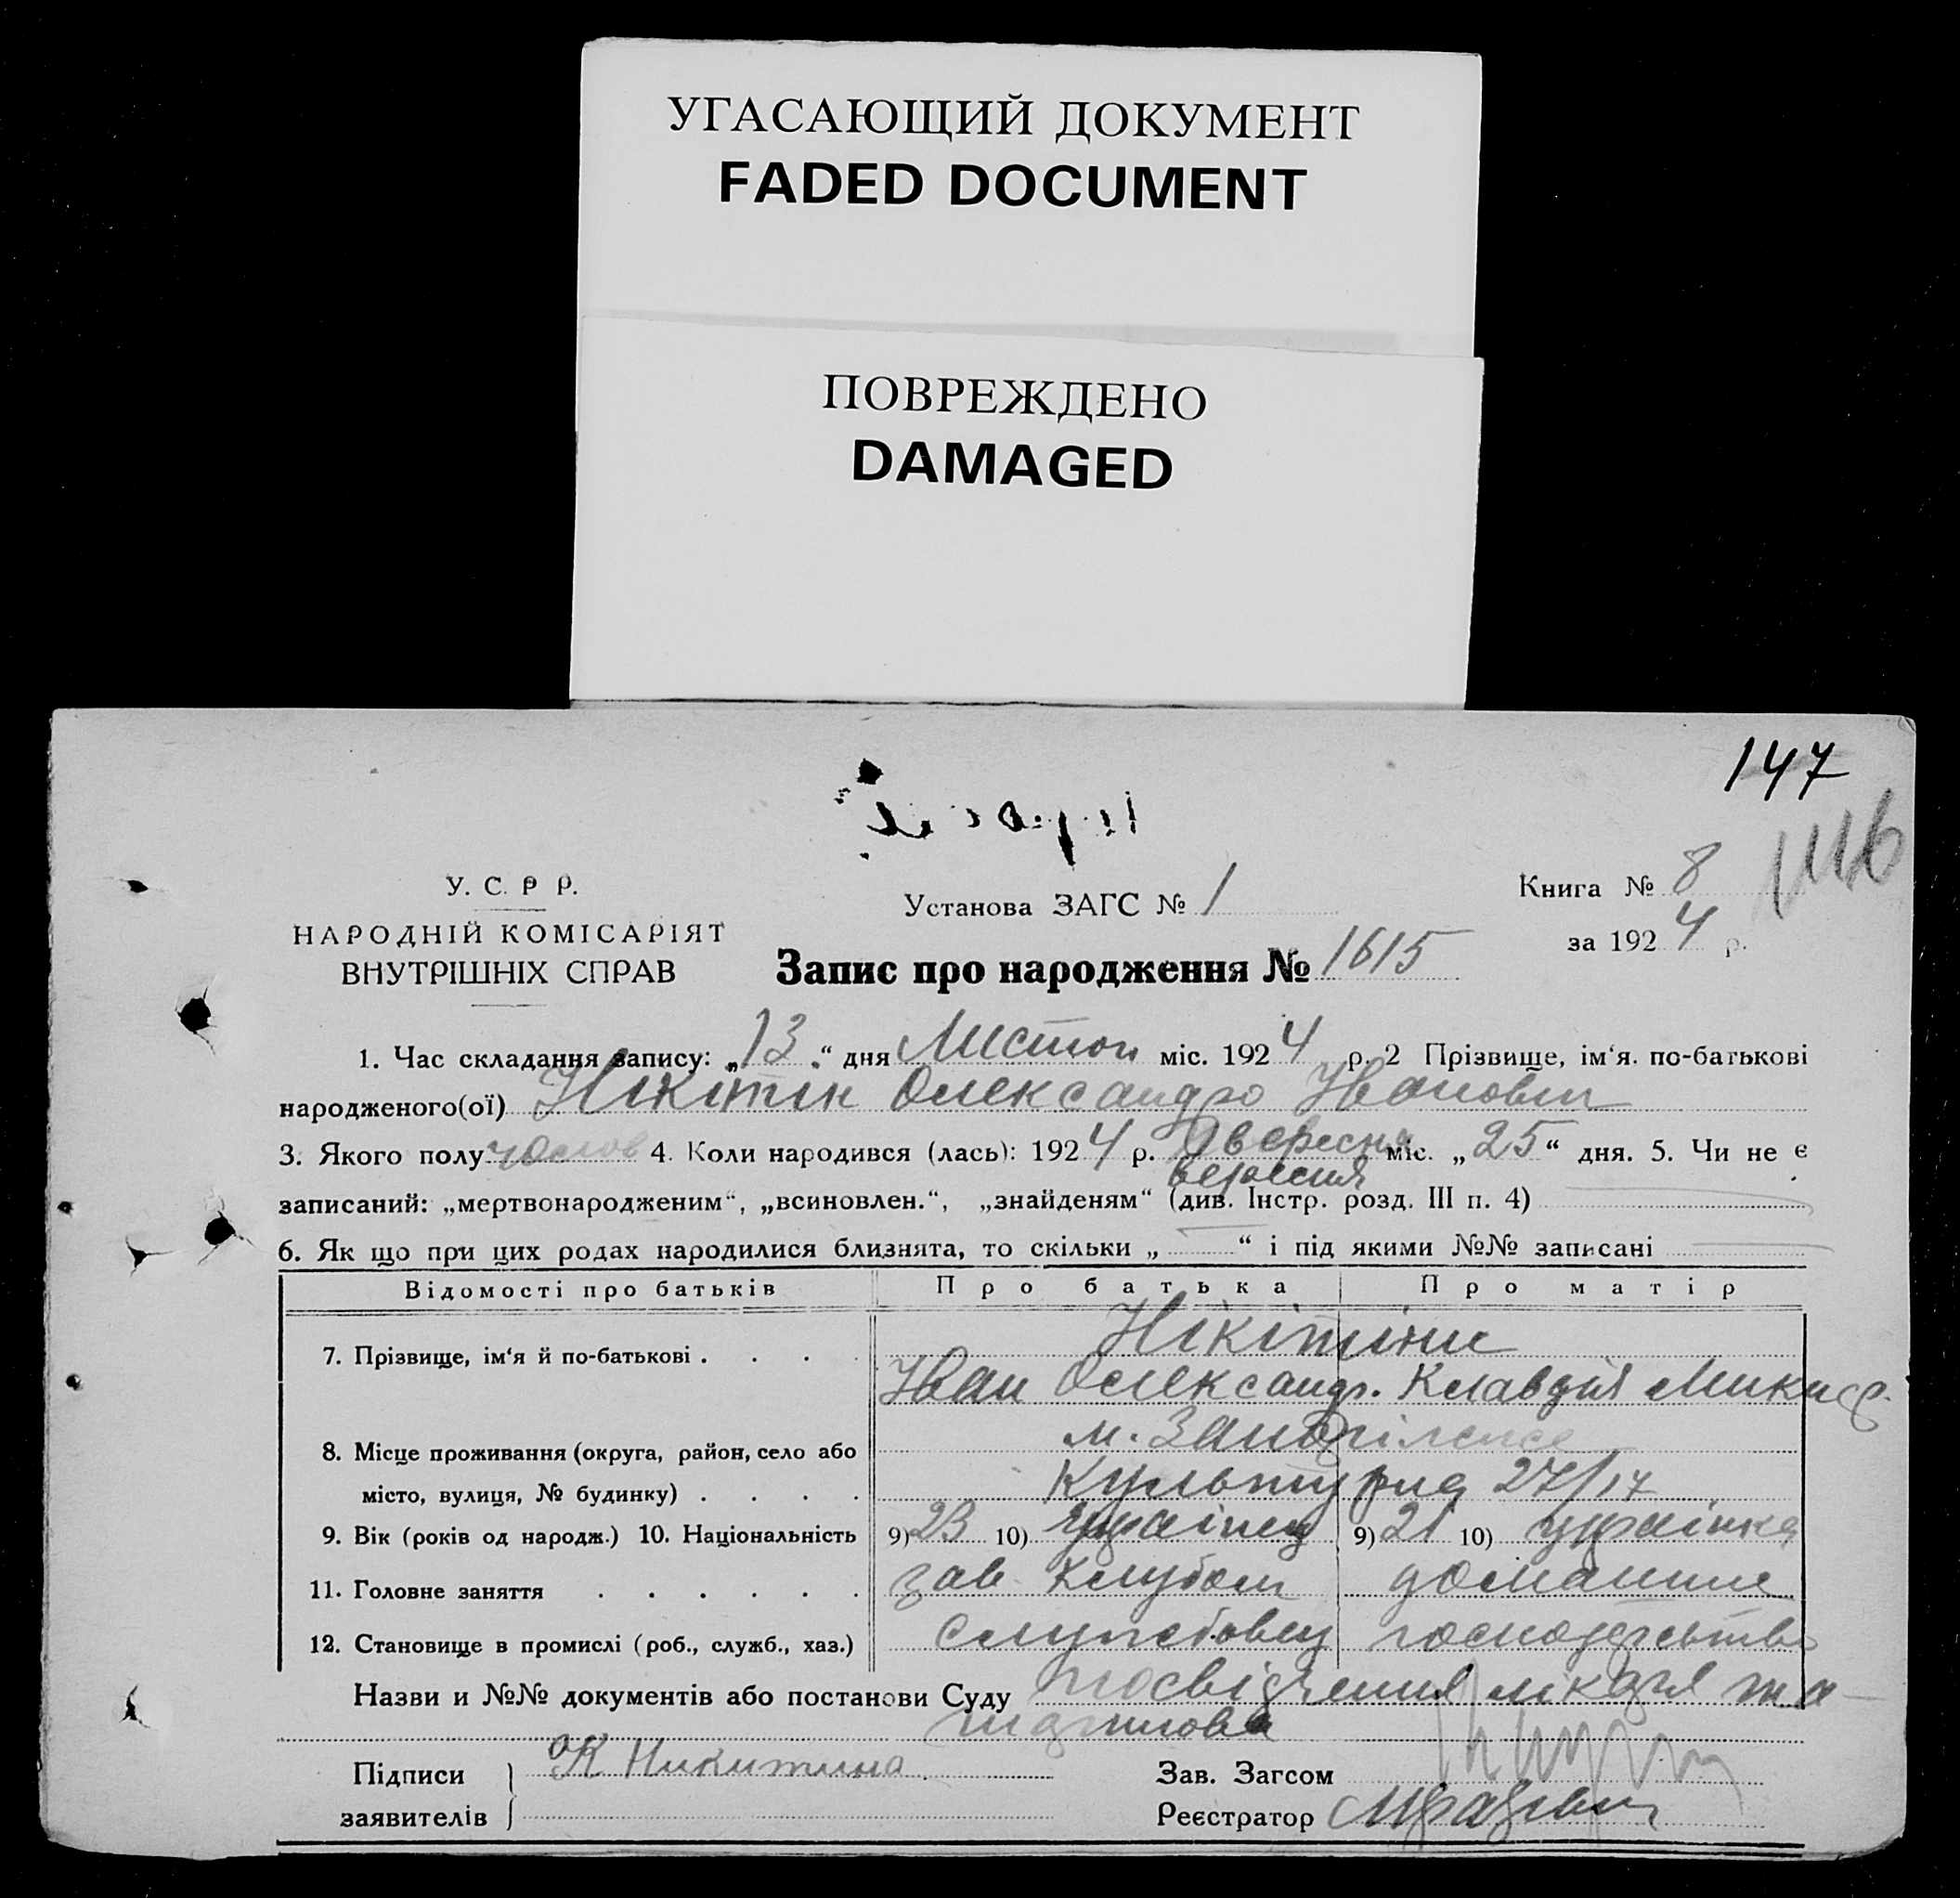 УГАСАЮЩИЙ ДОКУМЕНТ
FADED DOCUMENT
ПОВРЕЖДЕНО
DAMAGED
147
У. С. Р Р.
Установа ЗАГС № 1
Книга № 8
НАРОДНІЙ КОМІСАРІЯТ
ВНУТРІШНІХ СПРАВ
за 1924 р.
Запис про народження № 1615
1. Час складання запису: „13“ дня Листоп міс. 1924 р. 2 Прізвище, ім‘я. по-батькові
народженого(ої) Нікітін Олександр Іванович
3. Якого полу чолов 4. Коли народився (лась): 1924 р. вересня міс. „25“ дня. 5. Чи не є
вересня
записаний: „мертвонародженим“, „всиновлен.“, „знайденям“ (див. Інстр. розд. III п. 4)
6. Як що при цих родах народилися близнята, то скільки „ “ і під якими №№ записані
Відомості про батьків Про батька Про матір
7. Прізвище, ім‘я й по-батькові . . . . Нікітіни
Іван Олександр. Клавдія Микиф.
8. Місце проживання (округа, район, село або м.
місто, вулиця, № будинку) . . . . Культурна 27/17
9. Вік (років од народж.) 10. Національність 9) 23 10) Українець 9) 21 10) українка
11. Головне заняття . . . . . . зав. клубом домашнє
12. Становище в промислі (роб., служб., хаз.) службовець господарство
Назви и №№ документів або постанови Суду посвідчення лікаря та
Підписи К Никитина
Зав. Загсом
заявителів
Реєстратор